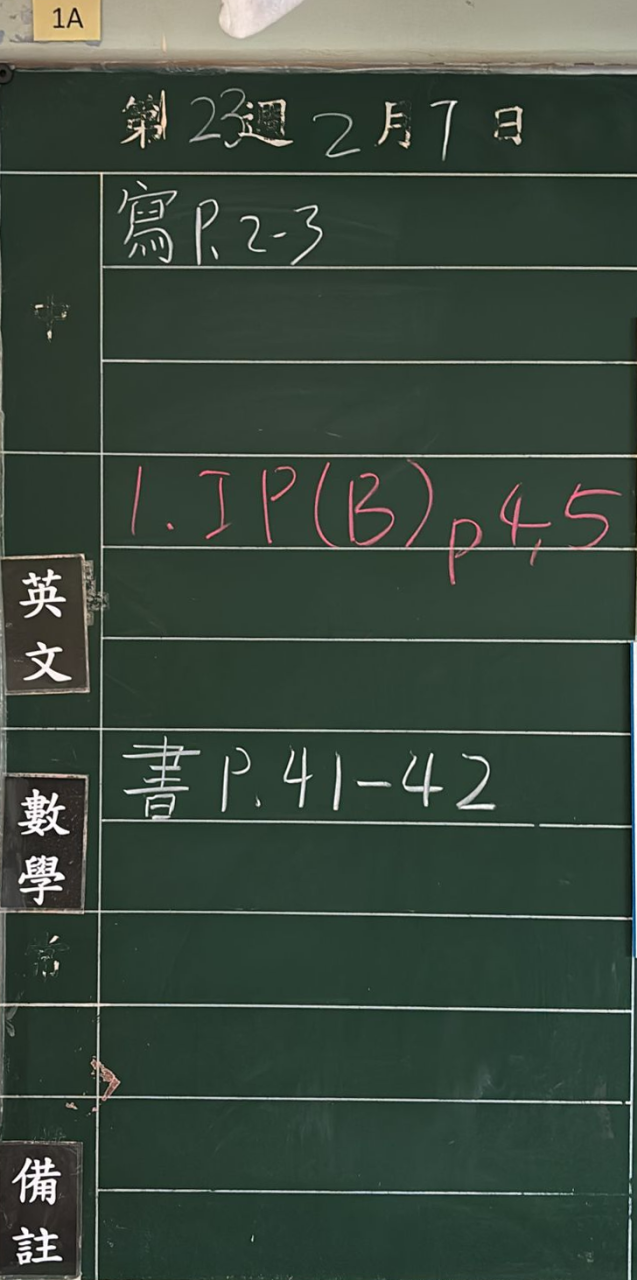 1A
第23週2月7日
寫P.2-3
中
1.IP(B)p4,5
英文
書P.41-42
數學
常
備註